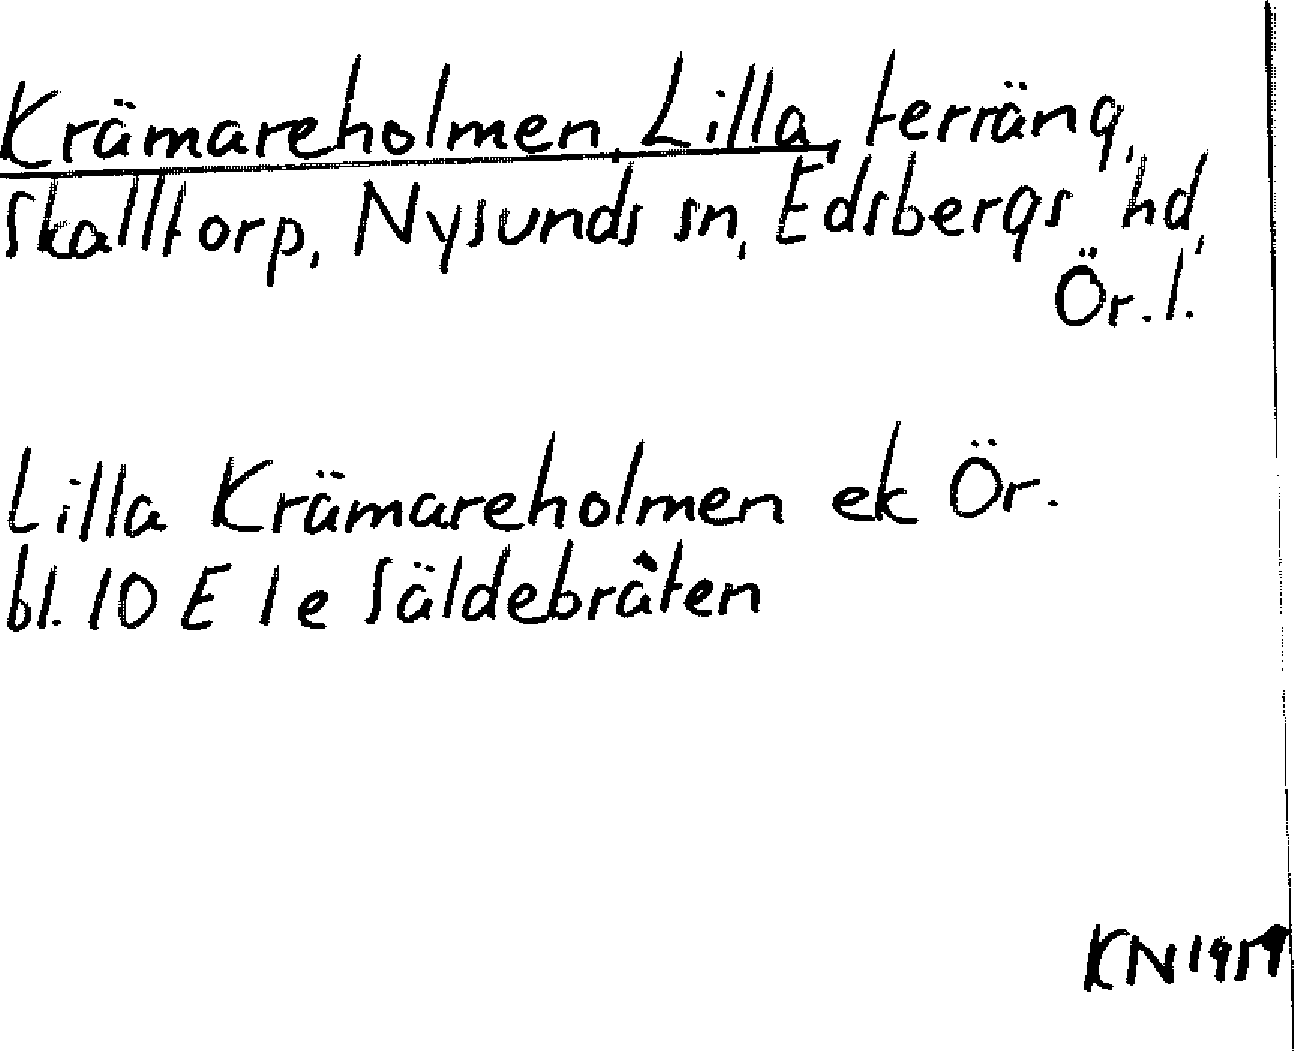 Krämareholmen, Lilla, terräng,
Skalltorp, Nysunds sn, Edsbergs hd,
Ör. l.
Lilla Krämareholmen ek Ör.
bl. 10 E 1 e Säldebråten
KN 1959